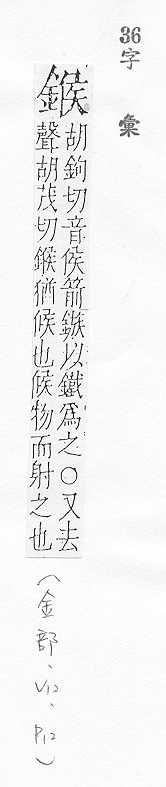 36字 彙
鍭
胡鉤切音侯箭鏃以鐵爲之○又去
聲胡茂切鍭猶候也候物而射之也
(金部、V12、P12)